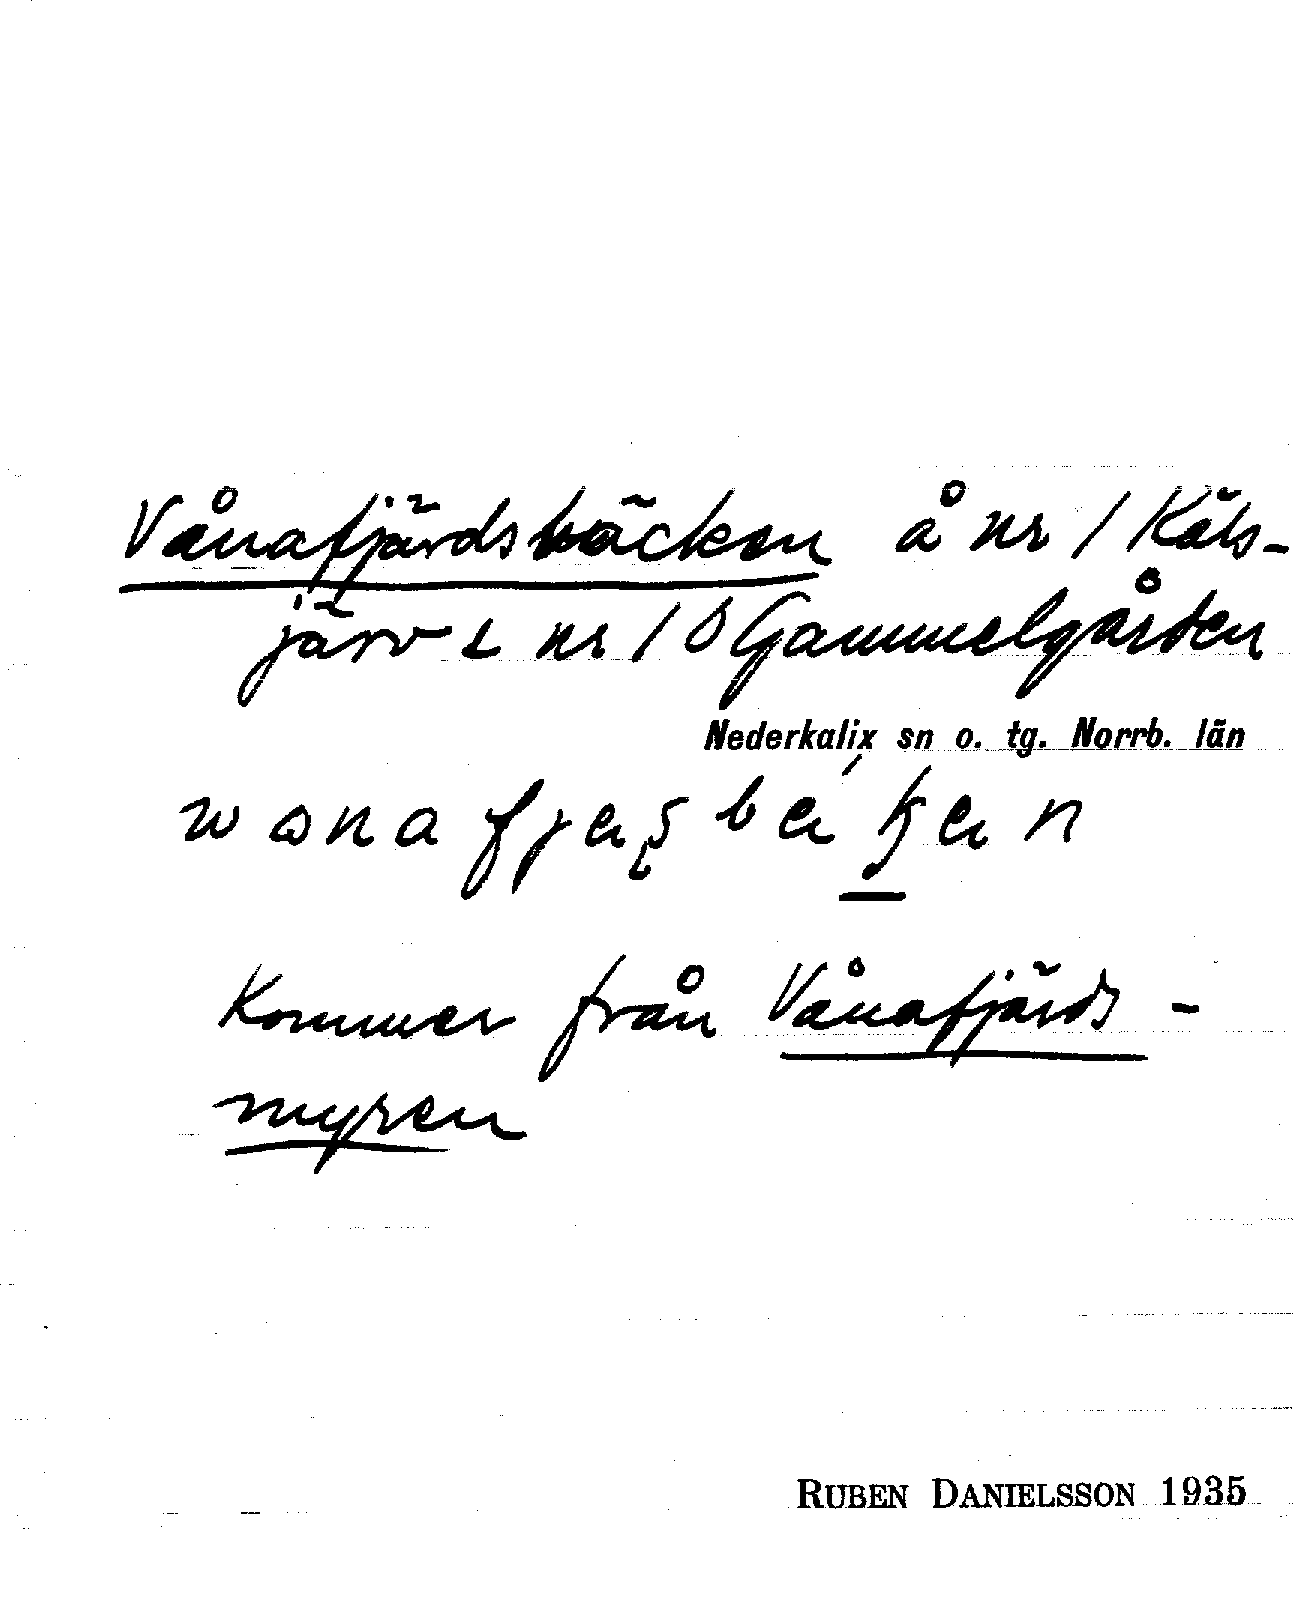 Vånafjärdsbäcken å nr 1 Käls-
järv & nr 10 Gammelgården
Nederkalix sn o. tg. Norrb. län
Kommer från Vånafjärds-
myren
RUBEN DANIELSSON 1935